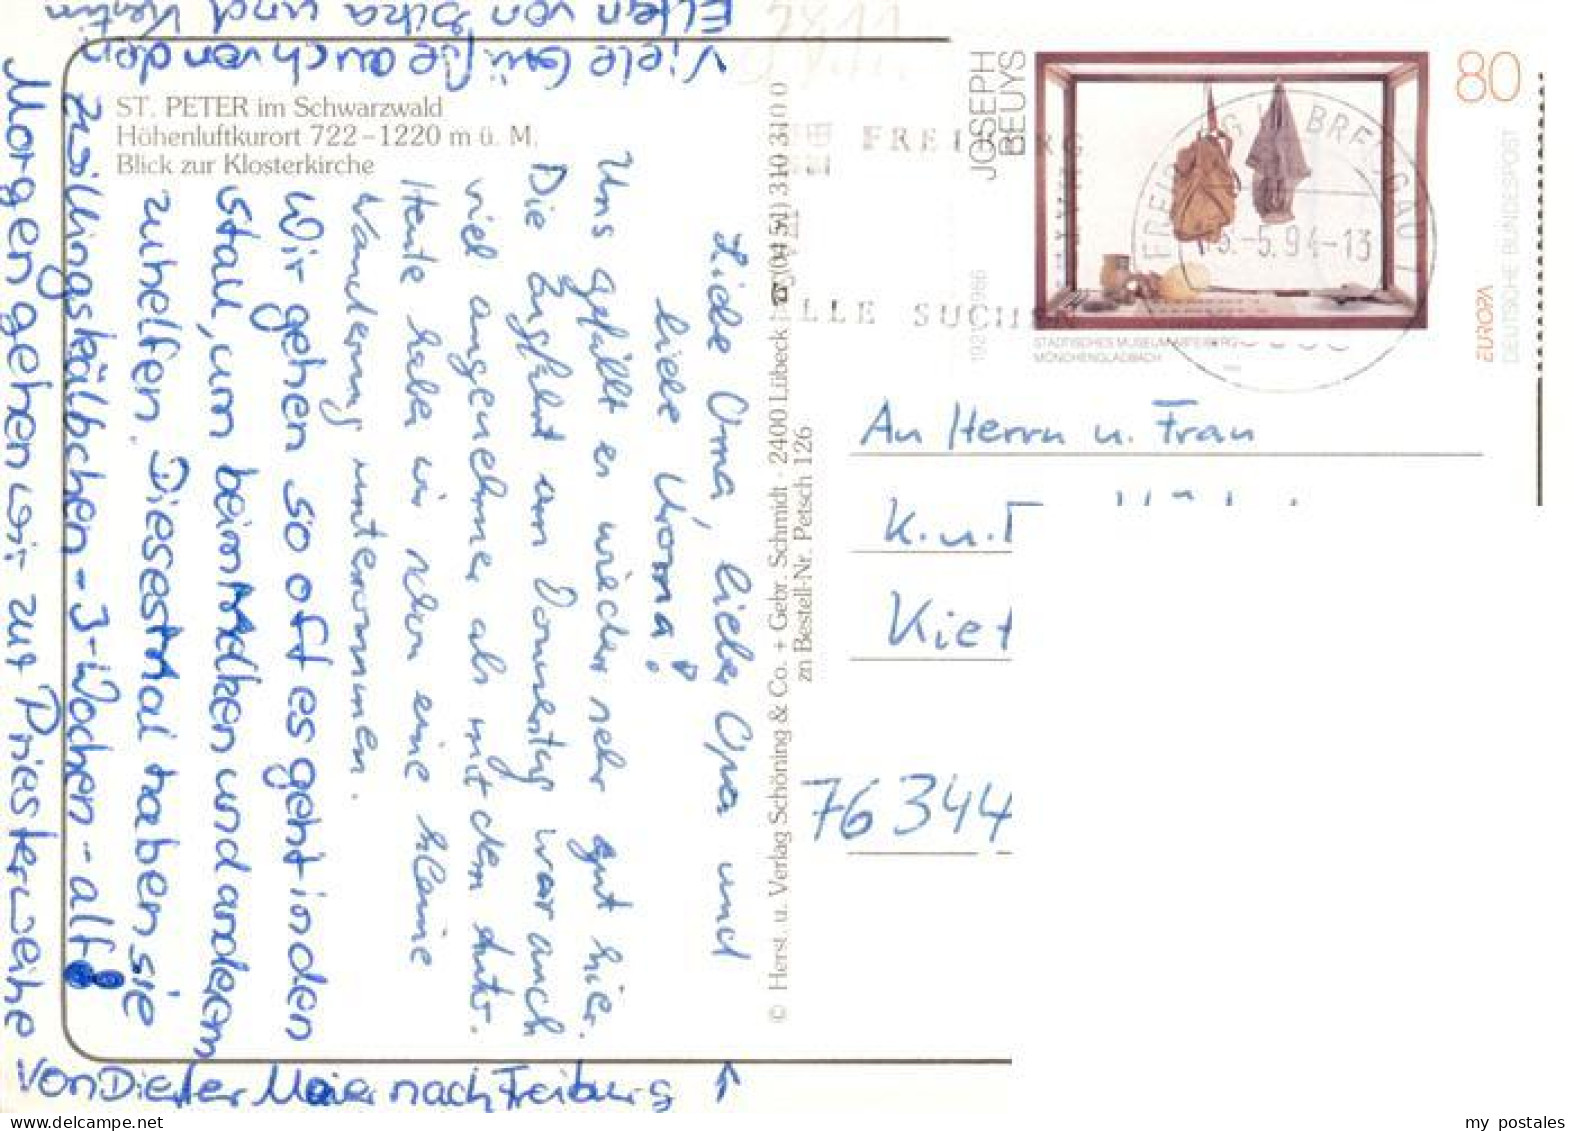 ST. PETER im Schwarzwald
Höhenluftkurort 722–1220 m ü. M.
Blick zur Klosterkirche
Liebe Oma, lieber Opa und
liebe Uroma!
Uns gefällt es wieder sehr gut hier.
Die Zugfahrt am Donnerstag war auch
viel angenehmer als mit dem Auto.
Heute haben wir schon eine kleine
Wanderung unternommen.
Wir gehen so oft es geht in den
Stall, um beim Melken und anderem
zu helfen. Dieses Mal haben sie
Zwillingskälbchen - 3-Wochen - alt!
Morgen gehen wir zur Priesterweihe
von Dieter Maier nach Freiburg
Viele Grüße auch von den
Eltern von Silka und Kerstin
© Herst. u. Verlag Schöning & Co. + Gebr. Schmidt · 2400 Lübeck · ☎ (04 51) 310 310 0
zn Bestell-Nr. Petsch 126
JOSEPH
BEUYS
80
EUROPA
DEUTSCHE BUNDESPOST
STÄDTISCHES MUSEUM ABTEIBERG
MÖNCHENGLADBACH
FREIBURG IM BREISGAU 1
-5.94-13
FREIBURG
LLE SUCHEN
28.11.
An Herrn u. Frau
K. u.
Kiet
76344
my postales